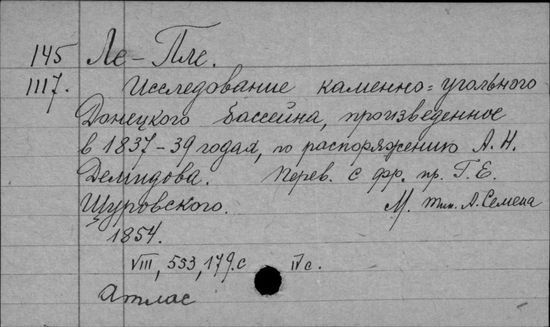 145 Ле-Пле.
1117. Исследование каменно=угольного
Донецкого бассейна, произведенное
в 1837-39 годах, по распоряжению А. Н.
Демидова. Перев. с фр. пр. Г. Е.
Щуровского. М. тип. А. Семена
1854.
VIII, 533, 179.с IV с.
Атлас